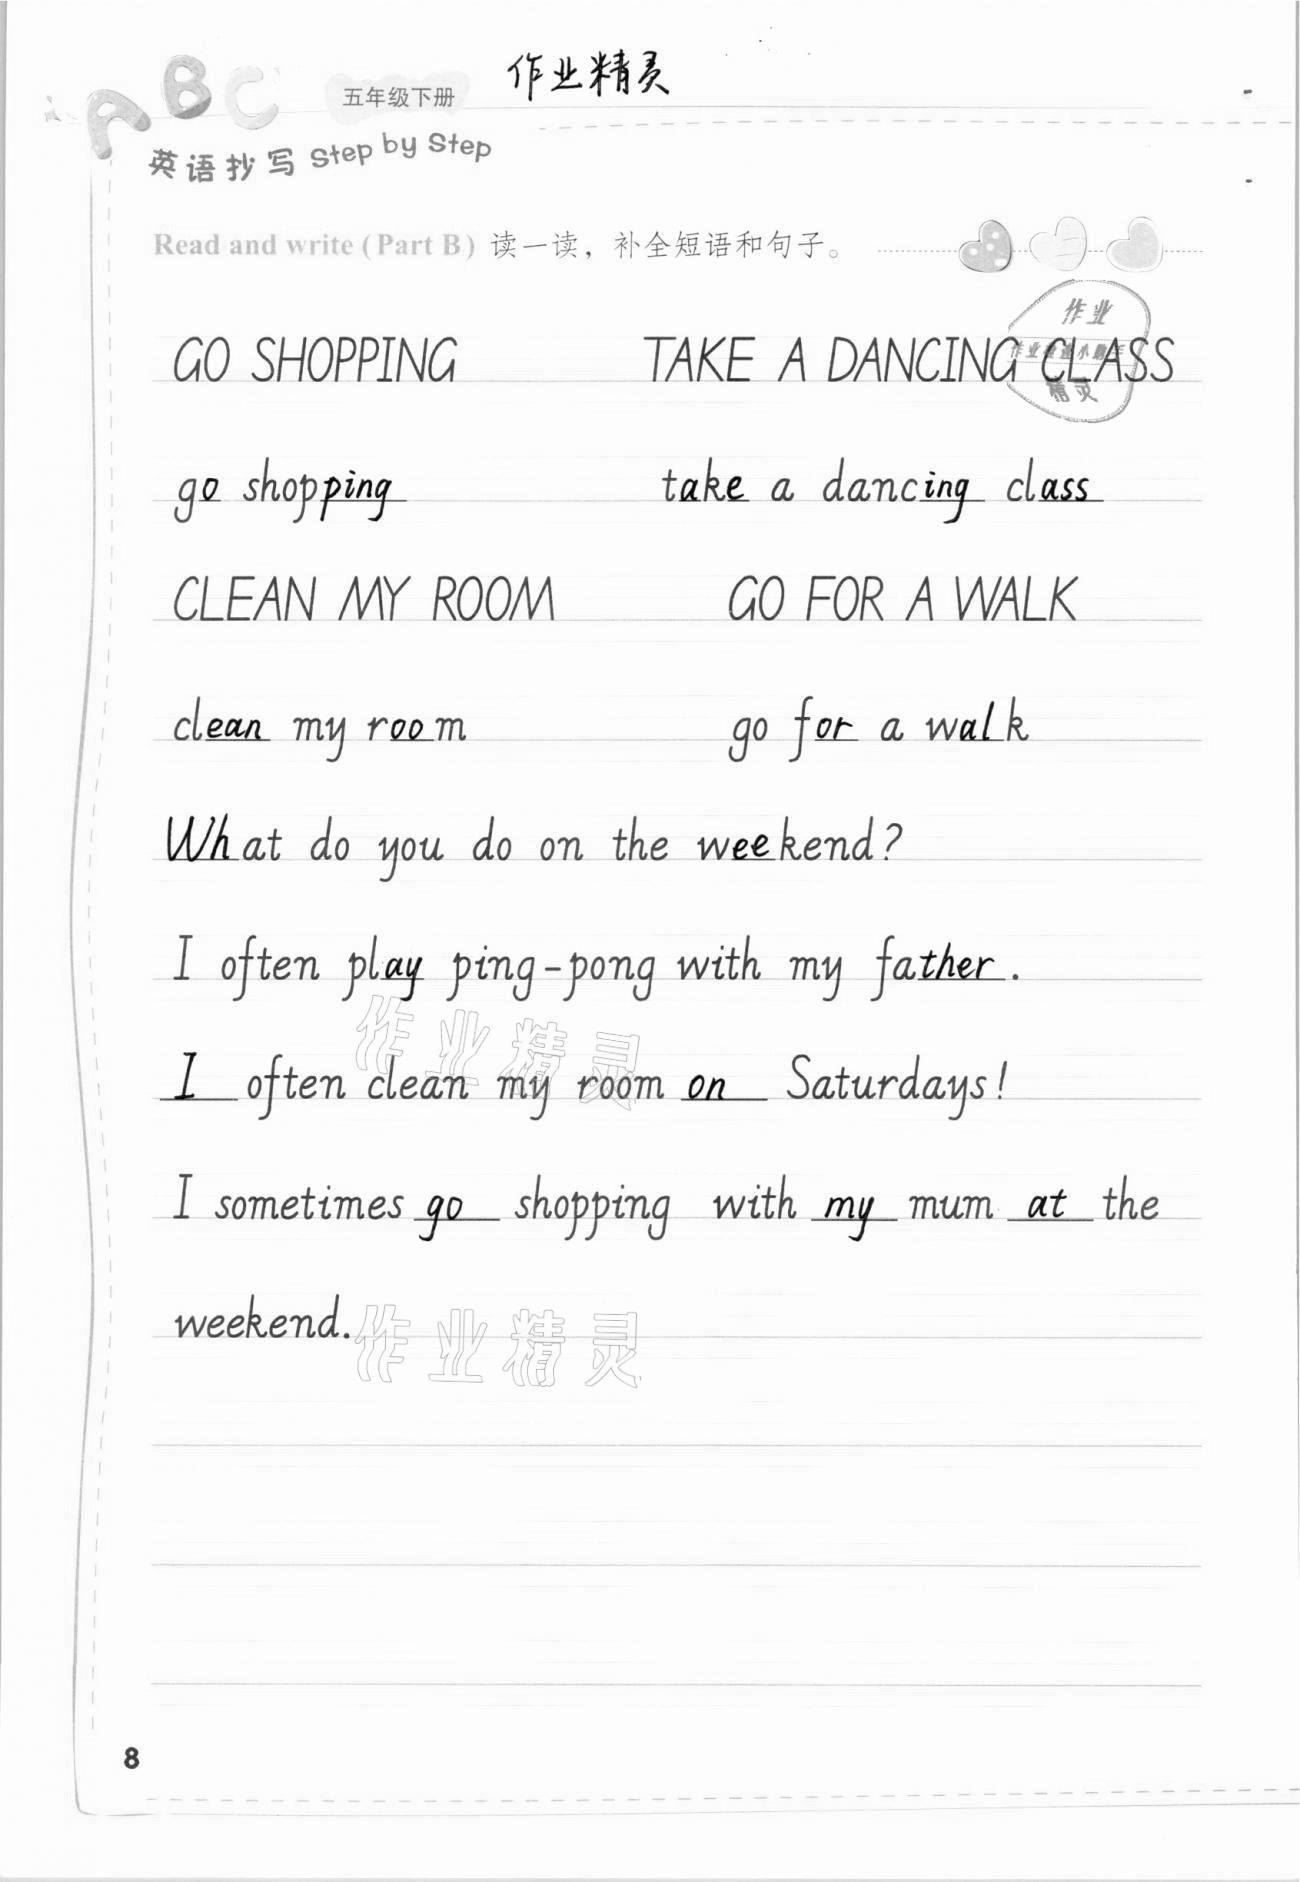 作业精灵
ABC 五年级下册
英语抄写 Step by Step
Read and write (Part B) 读一读，补全短语和句子。
作业
GO SHOPPING TAKE A DANCING CLASS
精灵
go shopping take a dancing class
CLEAN MY ROOM GO FOR A WALK
clean my room go for a walk
What do you do on the weekend?
I often play ping-pong with my father.
作业精灵
I often clean my room on Saturdays!
I sometimes go shopping with my mum at the
weekend.
作业精灵
8